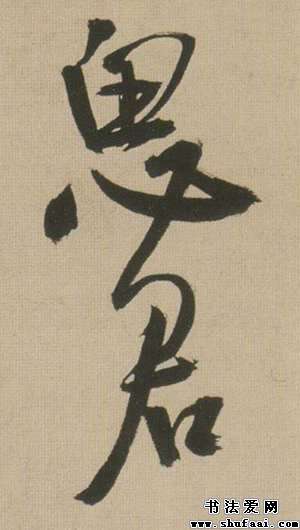 思君
书法爱网
www.shufaai.com